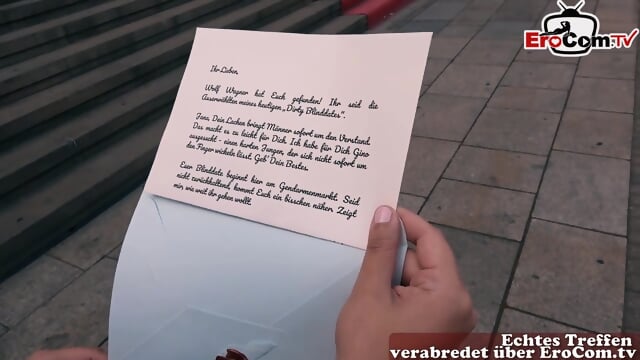 EroCom.TV
Ihr Lieben,
Wolf Wagner hat Euch gefunden! Ihr seid die
Auserwählten meines heutigen „Dirty Blinddates“.
Jana, Dein Lachen bringt Männer sofort um den Verstand.
Das macht es zu leicht für Dich. Ich habe für Dich Gino
ausgesucht - einen harten Jungen, der sich nicht sofort um
den Finger wickeln lässt. Geb' Dein Bestes.
Euer Blinddate beginnt hier am Gendarmenmarkt. Seid
nicht zurückhaltend, kommt Euch ein bisschen näher. Zeigt
mir, wie weit ihr gehen wollt.
Echtes Treffen
verabredet über EroCom.tv